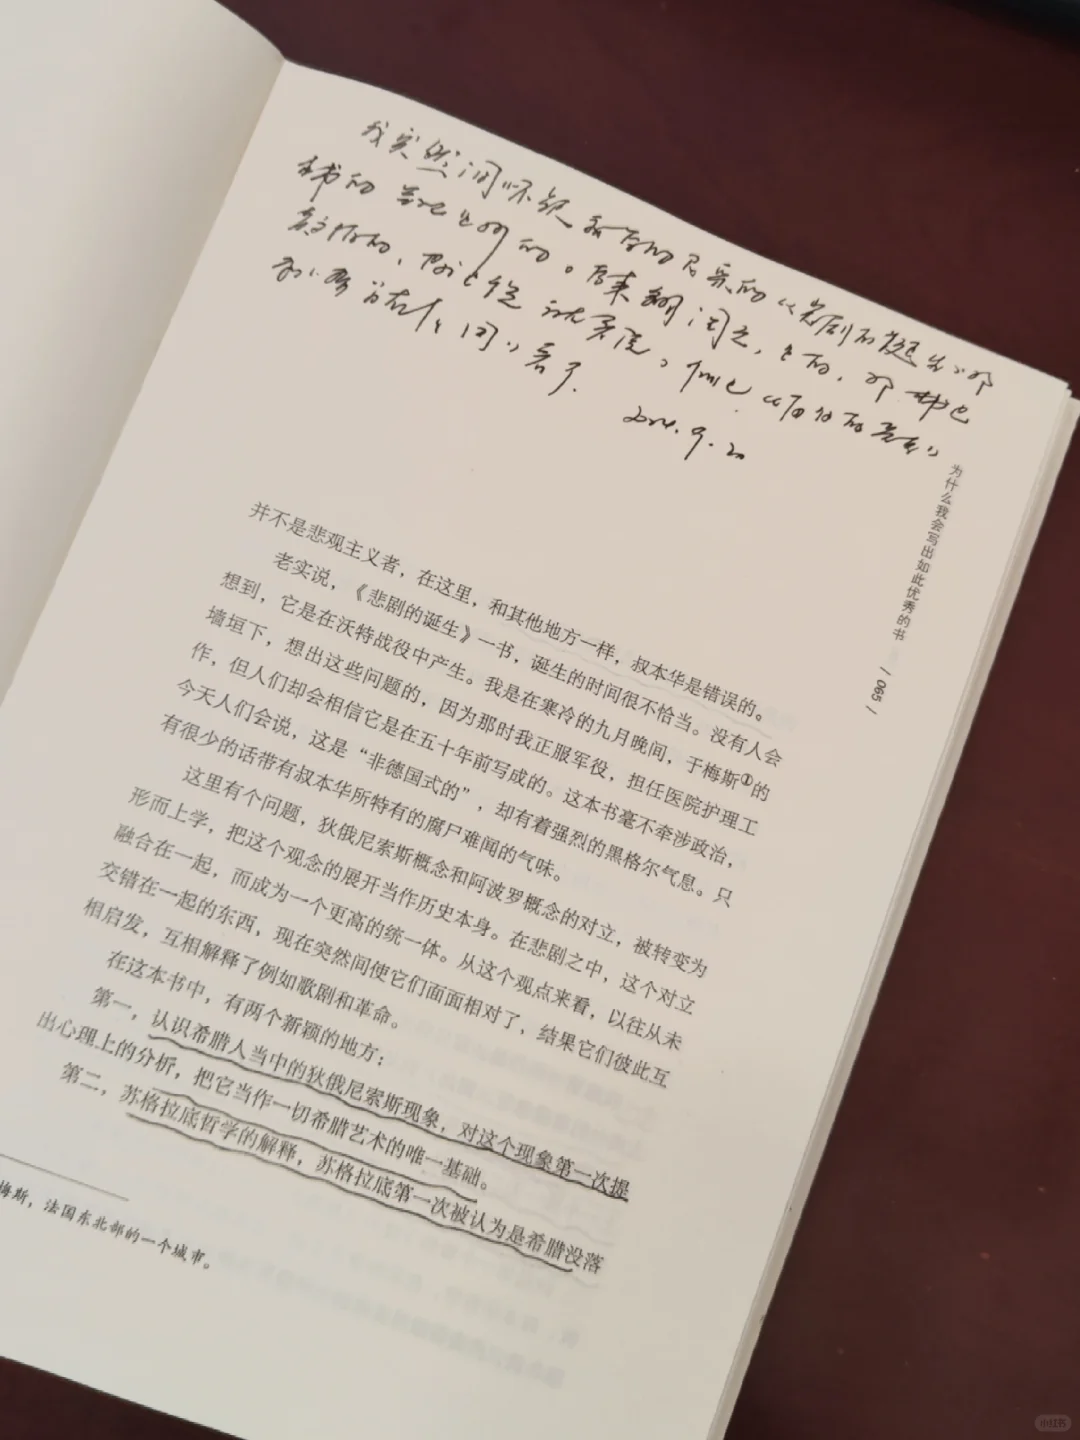 我突然间怀疑 的尼采的《悲剧的诞生》那
本书的 。后来翻阅之，
，就
看了。
2024.9.20
为什么我会写出如此优秀的书
/ 065 /
并不是悲观主义者，在这里，和其他地方一样，叔本华是错误的。
老实说，《悲剧的诞生》一书，诞生的时间很不恰当。没有人会
想到，它是在沃特战役中产生。我是在寒冷的九月晚间，于梅斯①的
墙垣下，想出这些问题的，因为那时我正服军役，担任医院护理工
作，但人们却会相信它是在五十年前写成的。这本书毫不牵涉政治，
今天人们会说，这是“非德国式的”，却有着强烈的黑格尔气息。只
有很少的话带有叔本华所特有的腐尸难闻的气味。
这里有个问题，狄俄尼索斯概念和阿波罗概念的对立，被转变为
形而上学，把这个观念的展开当作历史本身。在悲剧之中，这个对立
融合在一起，而成为一个更高的统一体。从这个观点来看，以往从未
交错在一起的东西，现在突然间使它们面面相对了，结果它们彼此互
相启发，互相解释了例如歌剧和革命。
在这本书中，有两个新颖的地方：
第一，认识希腊人当中的狄俄尼索斯现象，对这个现象第一次提
出心理上的分析，把它当作一切希腊艺术的唯一基础。
第二，苏格拉底哲学的解释，苏格拉底第一次被认为是希腊没落
梅斯，法国东北部的一个城市。
小红书